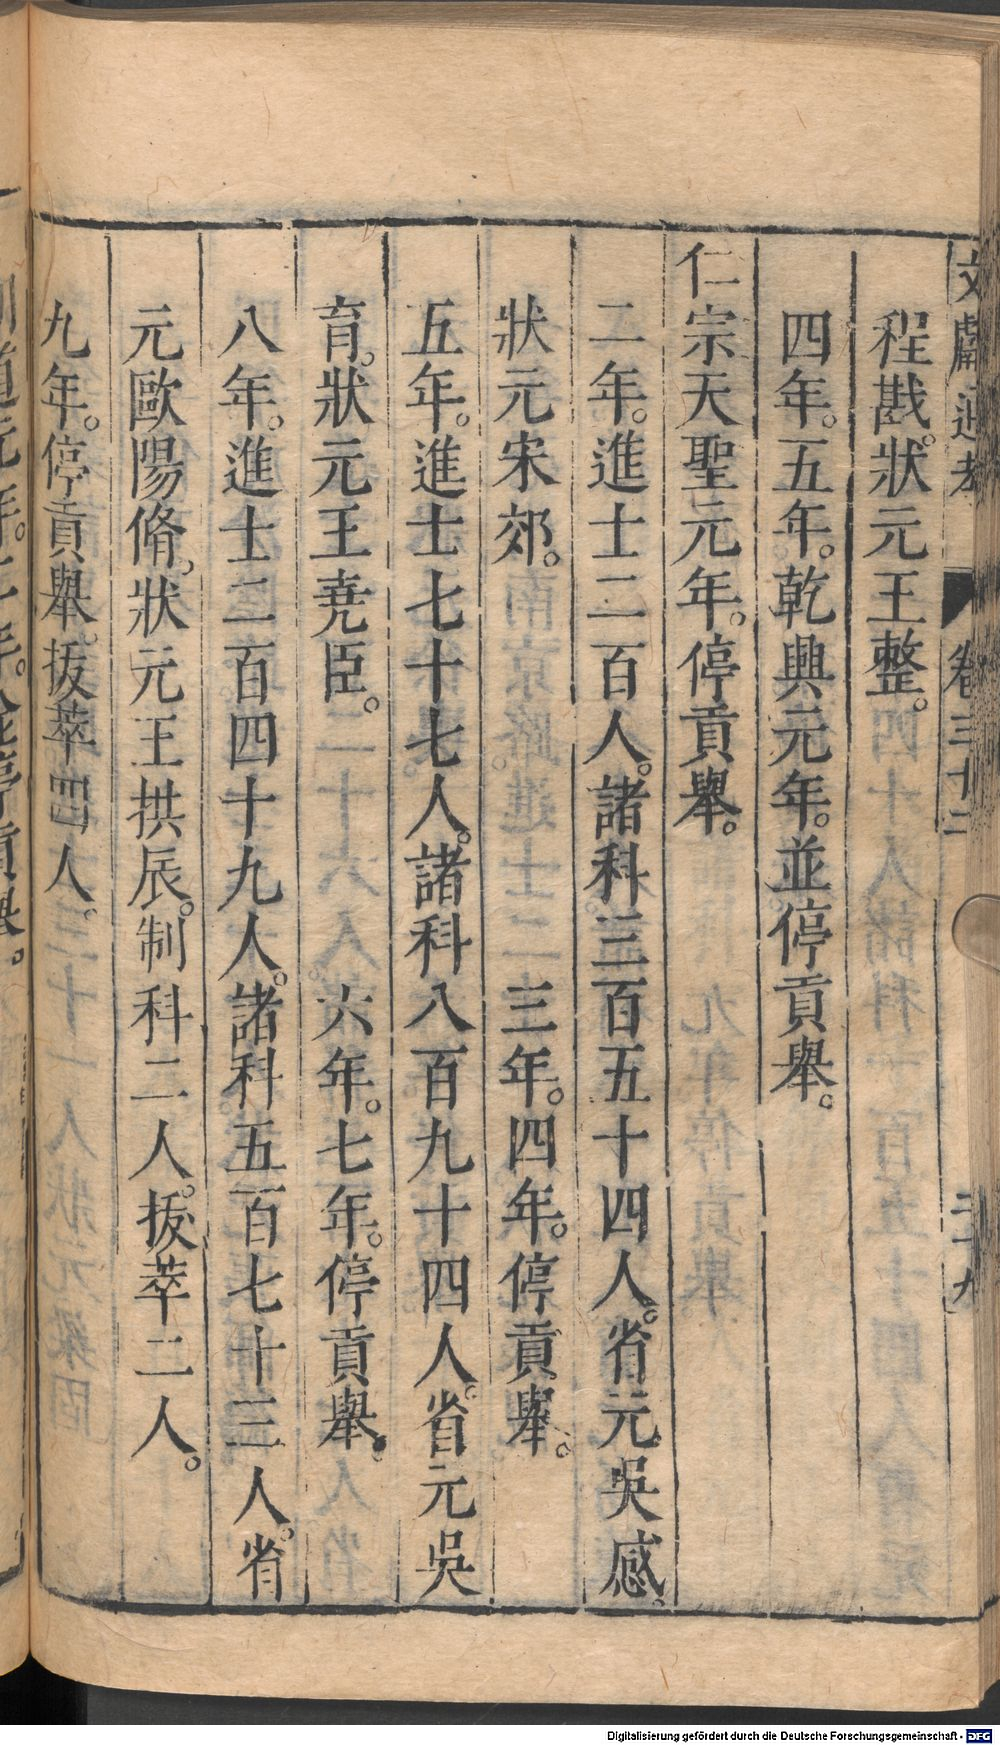 文獻通考 卷三十二 二十九
程戡。狀元王整。
四年。五年。乾興元年。並停貢舉。
仁宗天聖元年。停貢舉。
二年。進士二百人。諸科三百五十四人。省元吳感。
狀元宋郊。 三年。四年。停貢舉。
五年。進士七十七人。諸科八百九十四人。省元吳
育。狀元王堯臣。 六年。七年。停貢舉。
八年。進士二百四十九人。諸科五百七十三人。省
元歐陽脩。狀元王拱辰。制科二人。拔萃二人。
九年。停貢舉。拔萃四人。
Digitalisierung gefördert durch die Deutsche Forschungsgemeinschaft - DFG